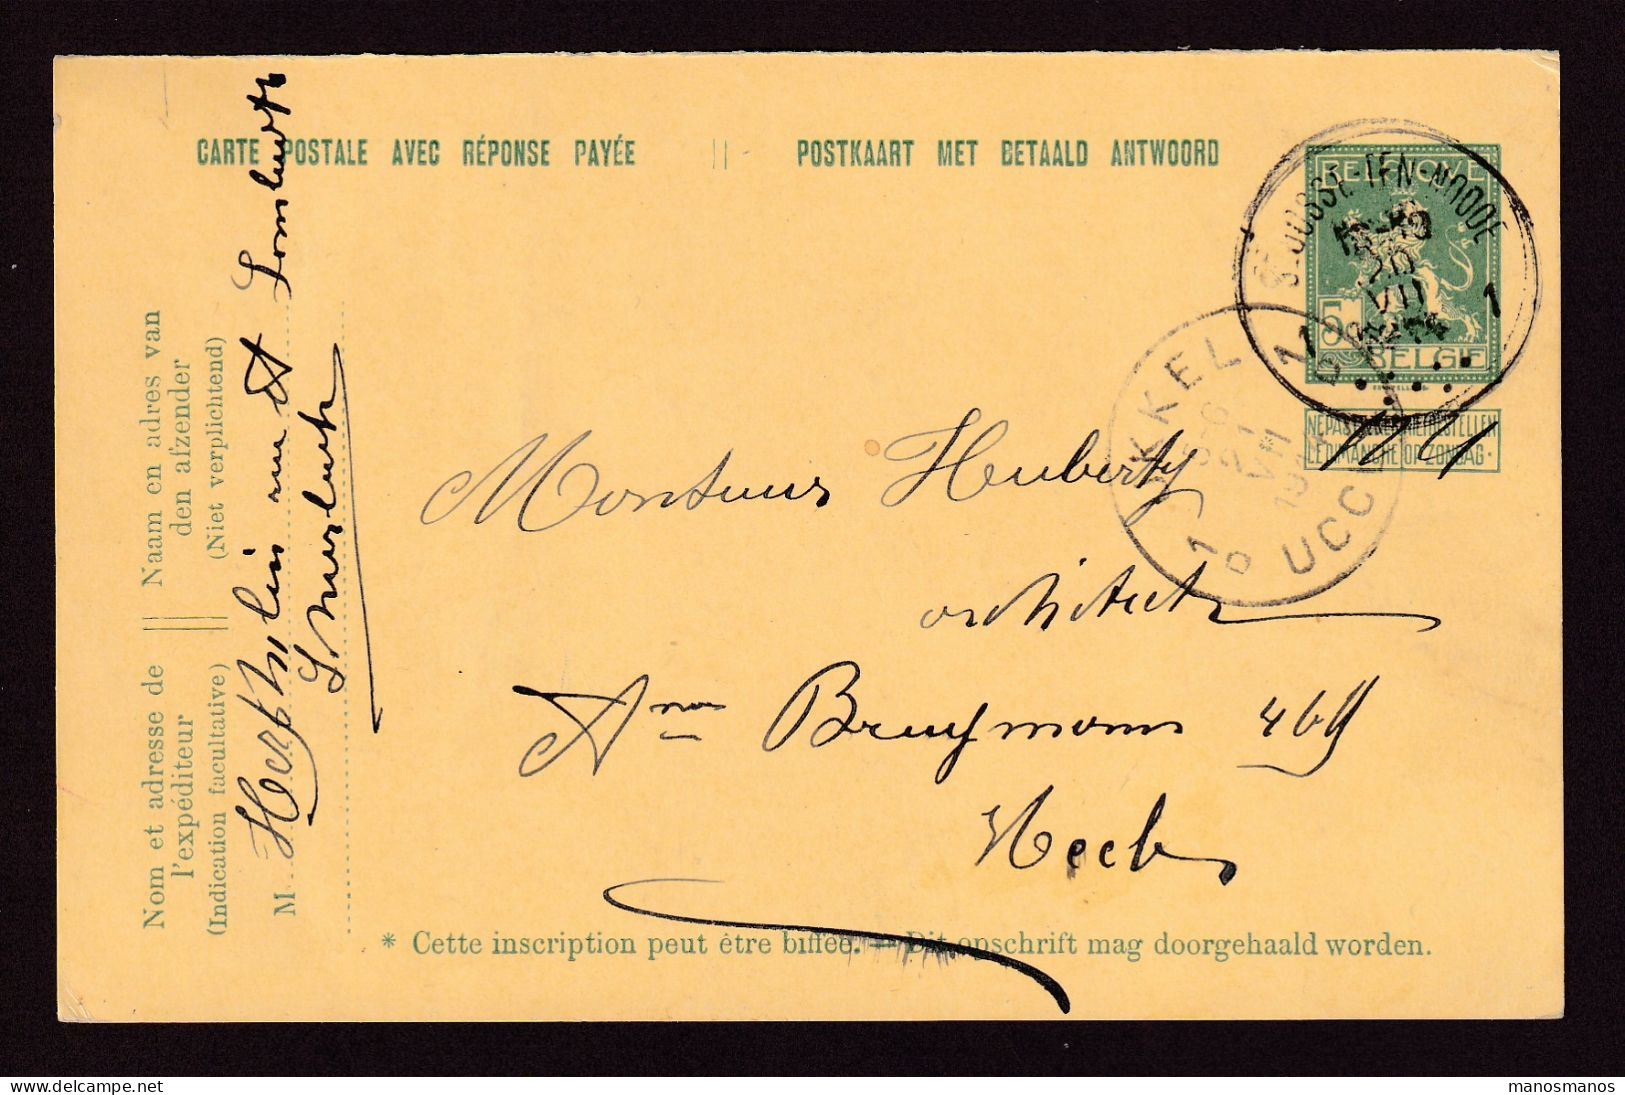 CARTE POSTALE AVEC RÉPONSE PAYÉE || POSTKAART MET BETAALD ANTWOORD
BELGIQUE
5
BELGIE
NE PAS LIVRER NIET BESTELLEN
LE DIMANCHE OP ZONDAG.
ST JOSSE-TEN-NOODE
20
VII
1 1
UKKEL
5-6
21
VII
UCCLE
1D
Monsieur Huberty
architecte
Aue Brugmann 469
Uccle
* Cette inscription peut être biffée. — Dit opschrift mag doorgehaald worden.
Nom et adresse de || Naam en adres van
l'expéditeur den afzender
(Indication facultative) || (Niet verplichtend)
M
rue St
manosmanos